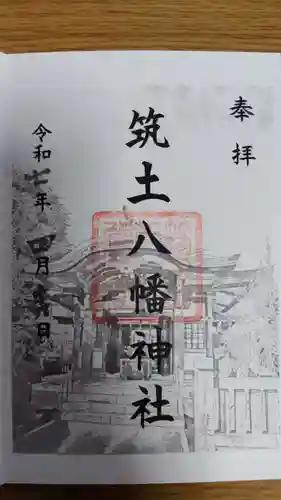 奉拝
筑土八幡神社
令和七年四月 日